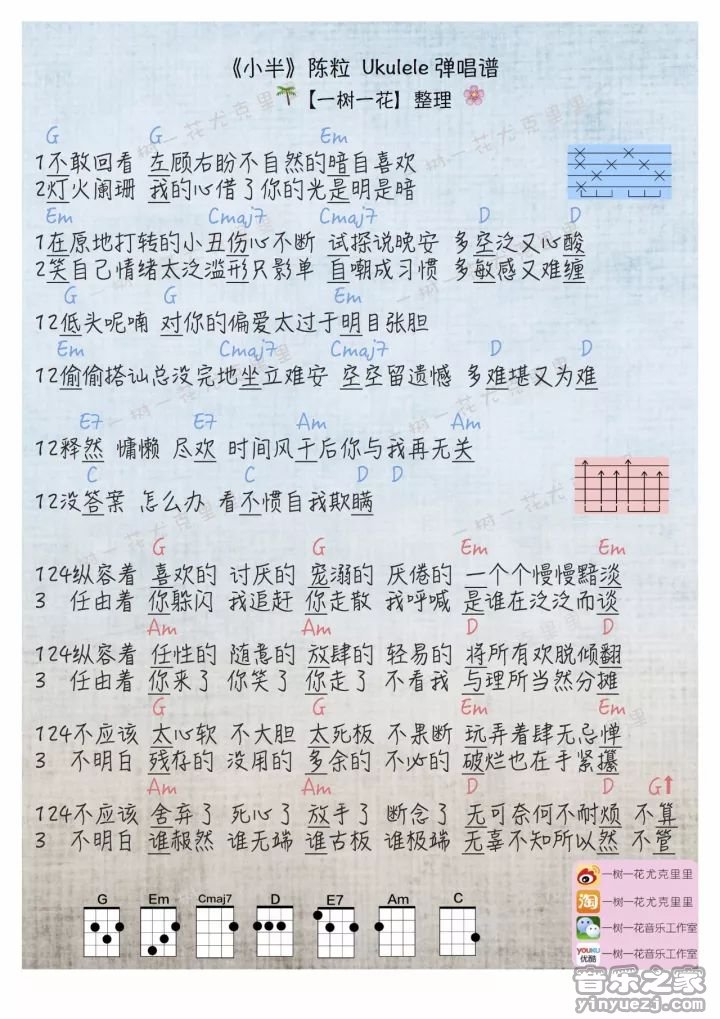 《小半》陈粒 Ukulele 弹唱谱
【一树一花】整理
G G Em
1不敢回看 左顾右盼不自然的暗自喜欢
2灯火阑珊 我的心借了你的光是明是暗
Em Cmaj7 Cmaj7 D D
1在原地打转的小丑伤心不断 试探说晚安 多空泛又心酸
2笑自己情绪太泛滥形只影单 自嘲成习惯 多敏感又难缠
G G Em
12低头呢喃 对你的偏爱太过于明目张胆
Em Cmaj7 Cmaj7 D D
12偷偷搭讪总没完地坐立难安 空空留遗憾 多难堪又为难
E7 E7 Am Am
12释然 慵懒 尽欢 时间风干后你与我再无关
C C D D
12没答案 怎么办 看不惯自我欺瞒
G G Em Em
124纵容着 喜欢的 讨厌的 宠溺的 厌倦的 一个个慢慢黯淡
3 任由着 你躲闪 我追赶 你走散 我呼喊 是谁在泛泛而谈
Am Am D D
124纵容着 任性的 随意的 放肆的 轻易的 将所有欢脱倾翻
3 任由着 你来了 你笑了 你走了 不看我 与理所当然分摊
G G Em Em
124不应该 太心软 不大胆 太死板 不果断 玩弄着肆无忌惮
3 不明白 残存的 没用的 多余的 不必的 破烂也在手紧攥
Am Am D D G↑
124不应该 舍弃了 死心了 放手了 断念了 无可奈何不耐烦 不算
3 不明白 谁赧然 谁无端 谁古板 谁极端 无辜不知所以然 不管
G Em Cmaj7 D E7 Am C
一树一花尤克里里
淘 一树一花尤克里里
一树一花音乐工作室
YOUKU 优酷 一树一花音乐工作室
音乐之家
yinyuezj.com